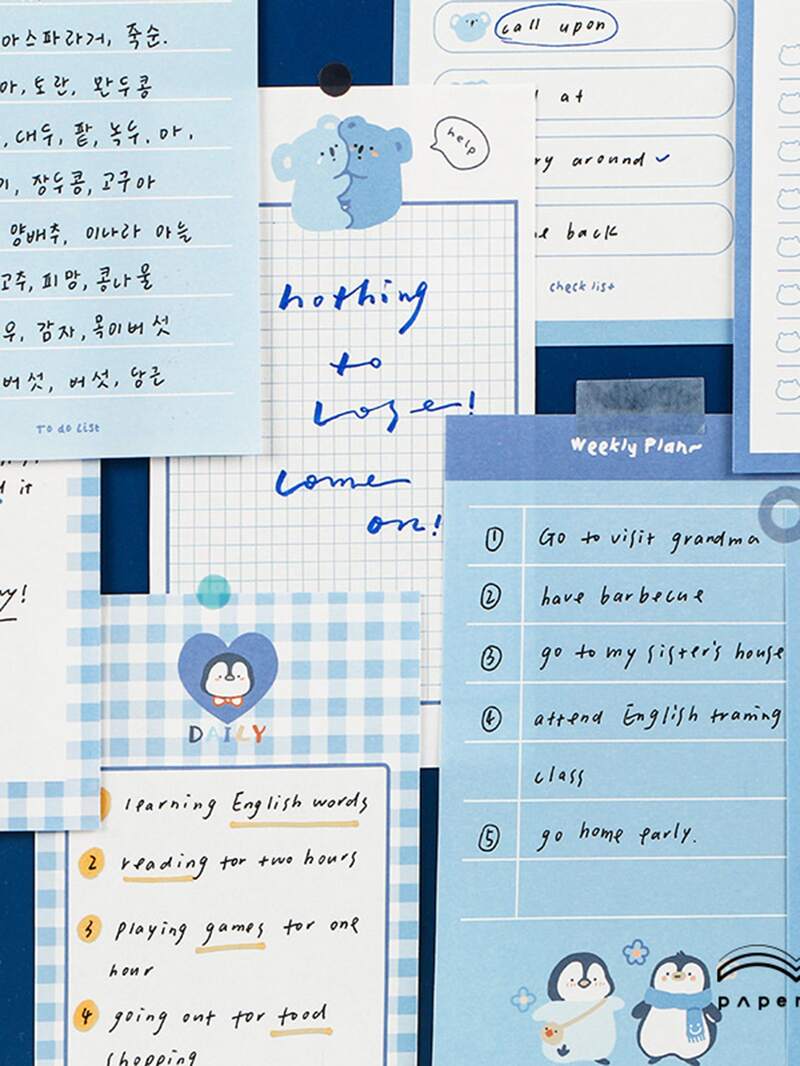 아스파라거, 죽순.
아, 토란, 완두콩
, 대두, 팥, 녹두, 마,
, 장두콩, 고구마
양배추, 미나라 마늘
고추, 피망, 콩나물
우, 감자, 목이버섯
버섯, 버섯, 당근
To do List
it
help
nothing
to
Lose!
come
on!
call upon
at
around ✓
back
check list
Weekly Plan~
① Go to visit grandma
② have barbecue
③ go to my sister's house
④ attend English training
class
⑤ go home early.
DAILY
learning English words
2 reading for two hours
3 playing games for one
hour
4 going out for food
shopping
PAPER